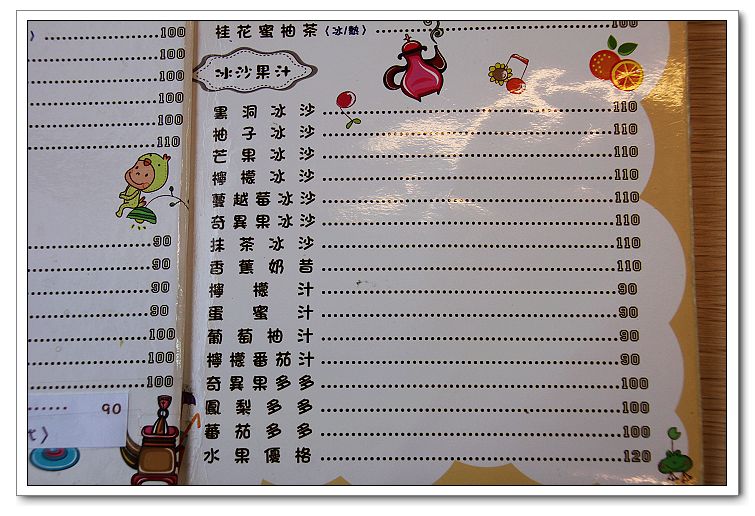 100
100
100
100
100
110
90
90
90
90
100
100
100
90
桂花蜜柚茶(冰/熱) 100
冰沙果汁
黑洞冰沙 110
柚子冰沙 110
芒果冰沙 110
檸檬冰沙 110
蔓越莓冰沙 110
奇異果冰沙 110
抹茶冰沙 110
香蕉奶昔 110
檸檬汁 90
蛋蜜汁 90
葡萄柚汁 90
檸檬番茄汁 90
奇異果多多 100
鳳梨多多 100
蕃茄多多 100
水果優格 120